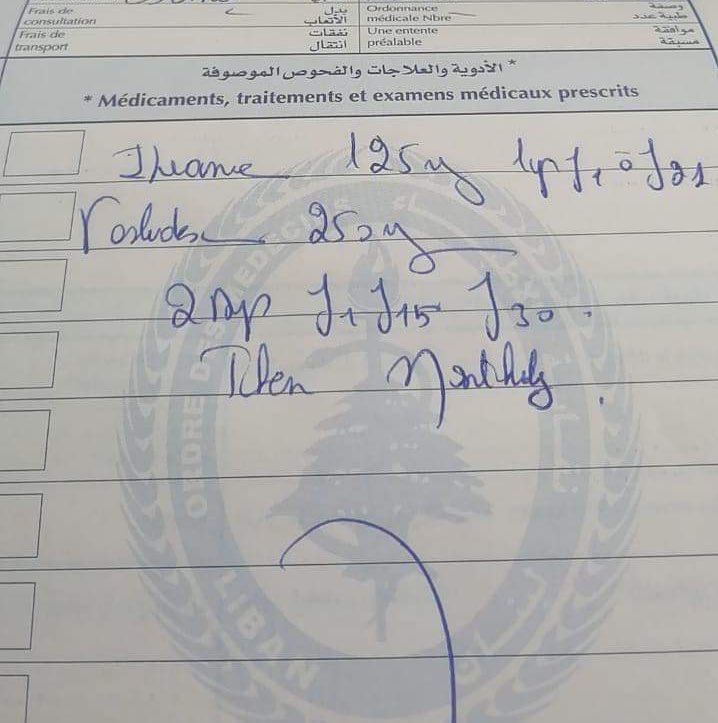 Frais de بدل Ordonnance وصفة
consultation الأتعاب médicale Nbre طبية عدد
Frais de نفقات Une entente موافقة
transport انتقال préalable مسبقة
* الأدوية والعلاجات والفحوص الموصوفة
* Médicaments, traitements et examens médicaux prescrits
Ibrance 125mg 1cp J1 à J21
Faslodex 250mg
2 Amp J1 J15 J30.
Then Monthly.
ORDRE DES MEDECINS
LIBAN